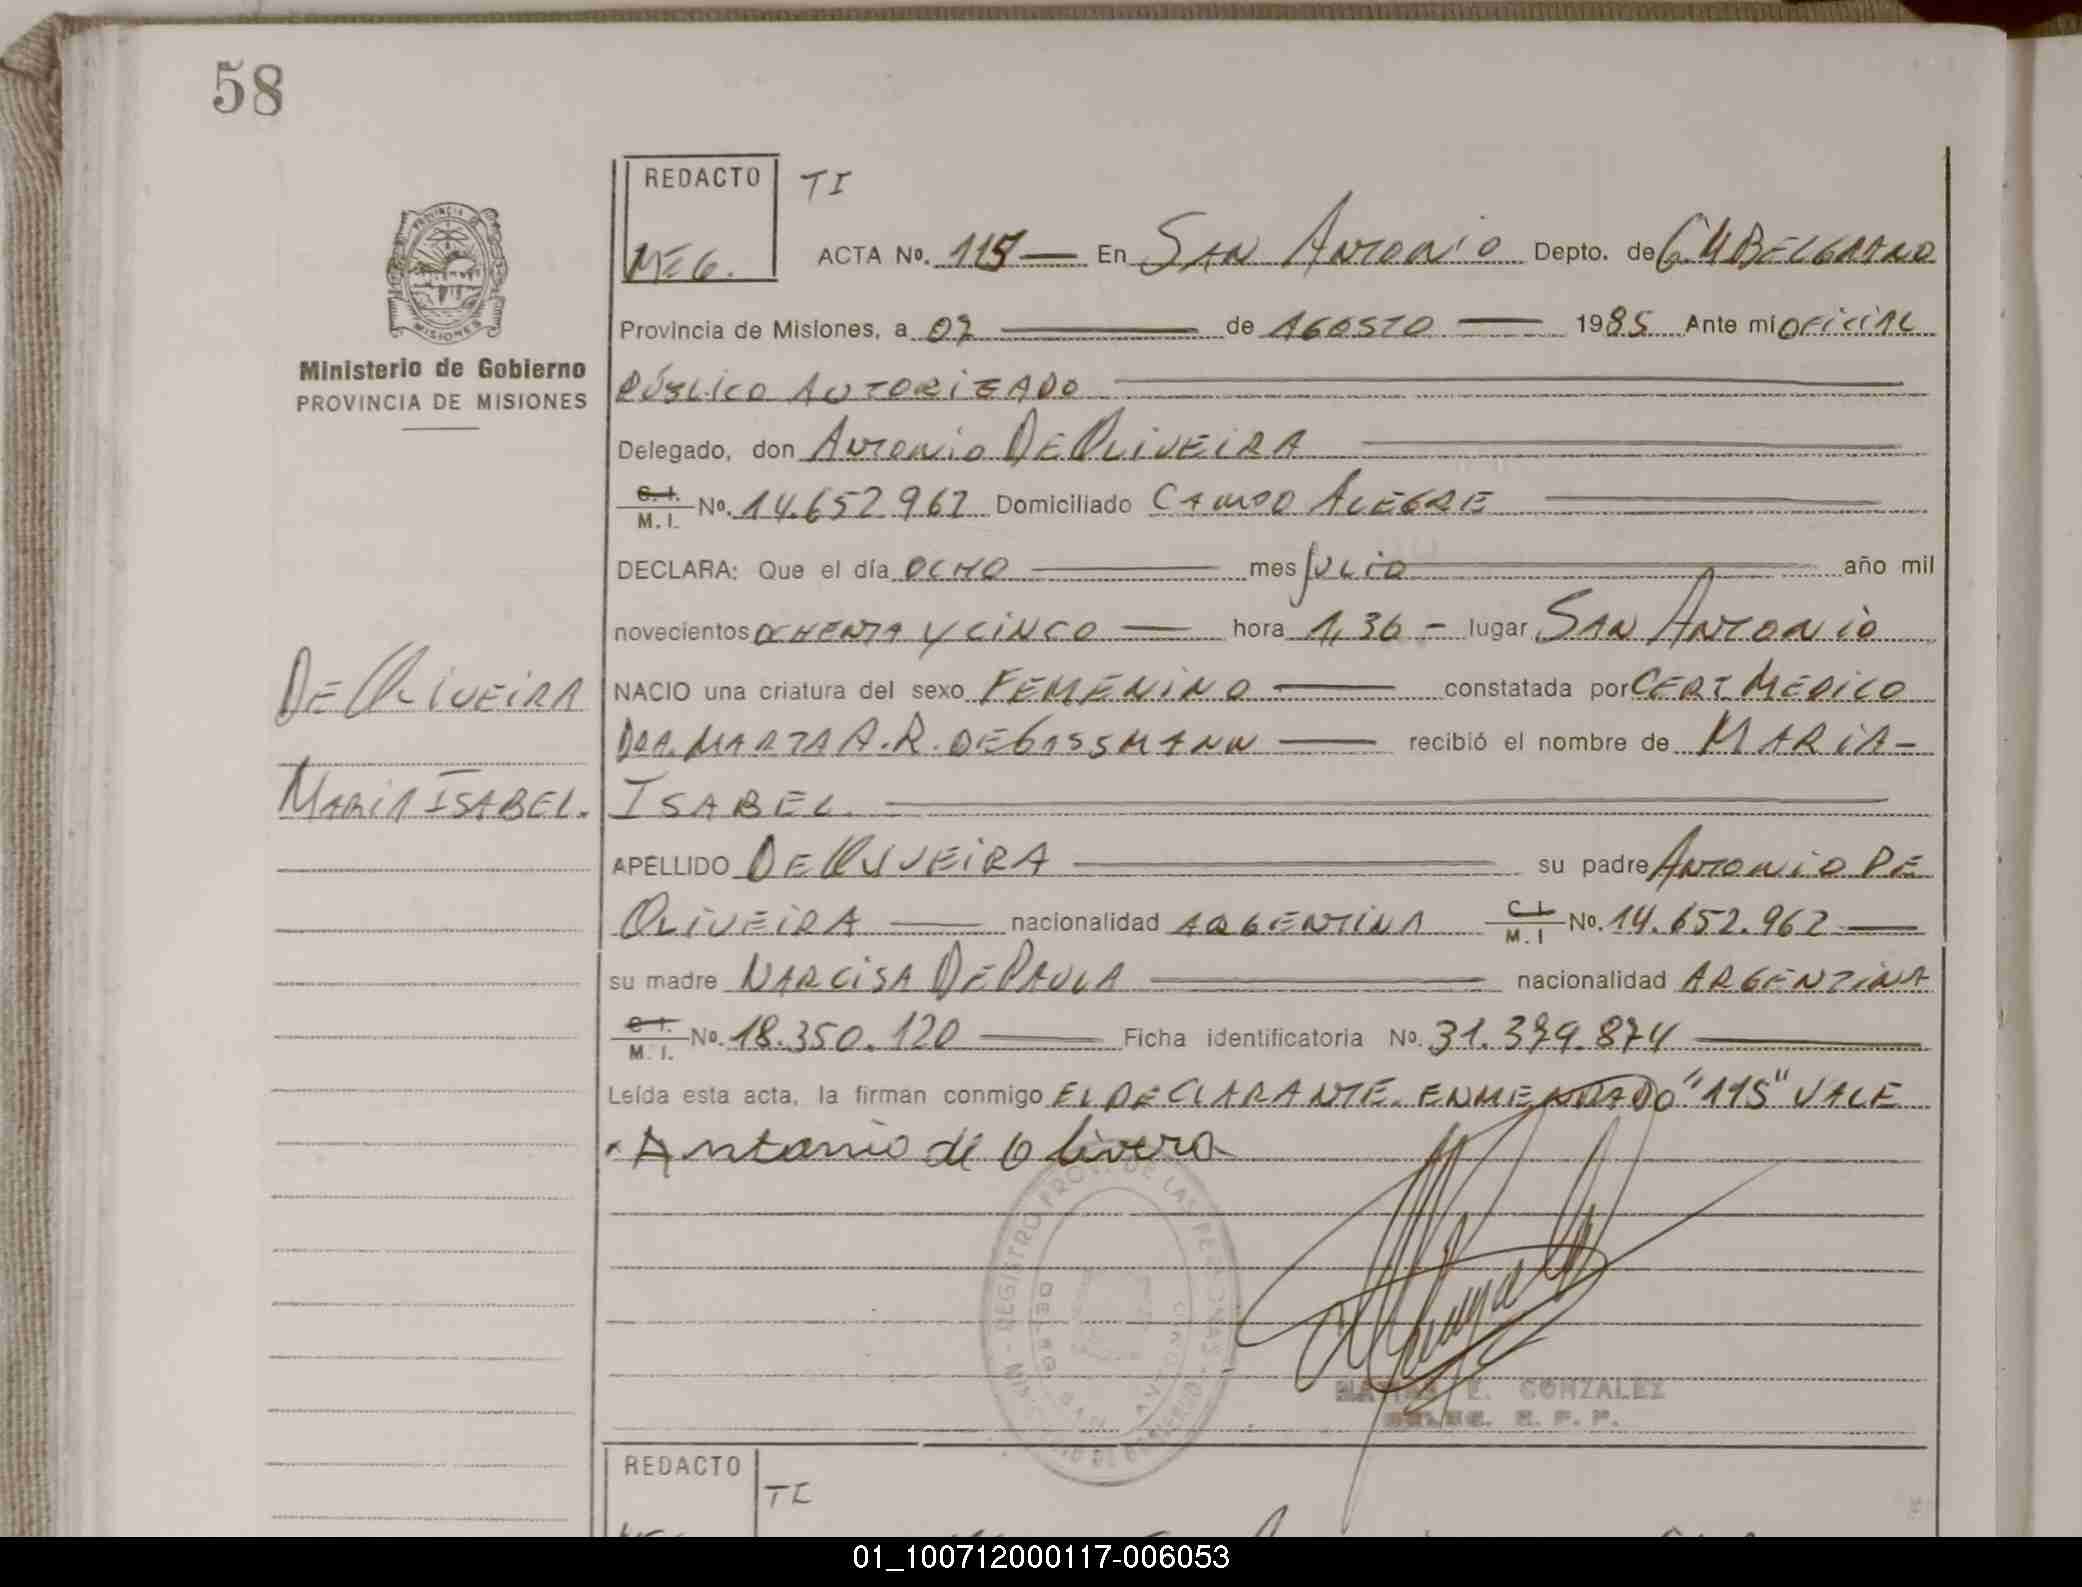 58
REDACTO TI
MEG.
ACTA No. 115 En SAN ANTONIO Depto. de G.M BELGRANO
PROVINCIA DE MISIONES
Provincia de Misiones, a 07 de AGOSTO 1985 Ante mi OFICIAL
Ministerio de Gobierno
PROVINCIA DE MISIONES
PÚBLICO AUTORIZADO
Delegado, don ANTONIO DE OLIVEIRA
C. I. M. I. No. 14.652.962 Domiciliado CAMPO ALEGRE
DECLARA: Que el día OCHO mes JULIO año mil
novecientos OCHENTA Y CINCO hora 1,36 - lugar SAN ANTONIO
DE OLIVEIRA
NACIO una criatura del sexo FEMENINO constatada por CERT. MEDICO
DRA. MARTA A. R. DE GASSMANN recibió el nombre de MARIA-
MARIA ISABEL.
ISABEL.
APELLIDO DE OLIVEIRA su padre ANTONIO DE
OLIVEIRA nacionalidad ARGENTINA C I. M. I No. 14.652.962
su madre NARCISA DE PAULA nacionalidad ARGENTINA
C I. M. I. No. 18.350.120 Ficha identificatoria No. 31.379.874
Leída esta acta, la firman conmigo EL DECLARANTE. ENMENDADO "115" VALE
Antonio de Olivera
REGISTRO PROV. DE LAS PERSONAS
E. GONZALEZ
REDACTO TI
01_100712000117-006053